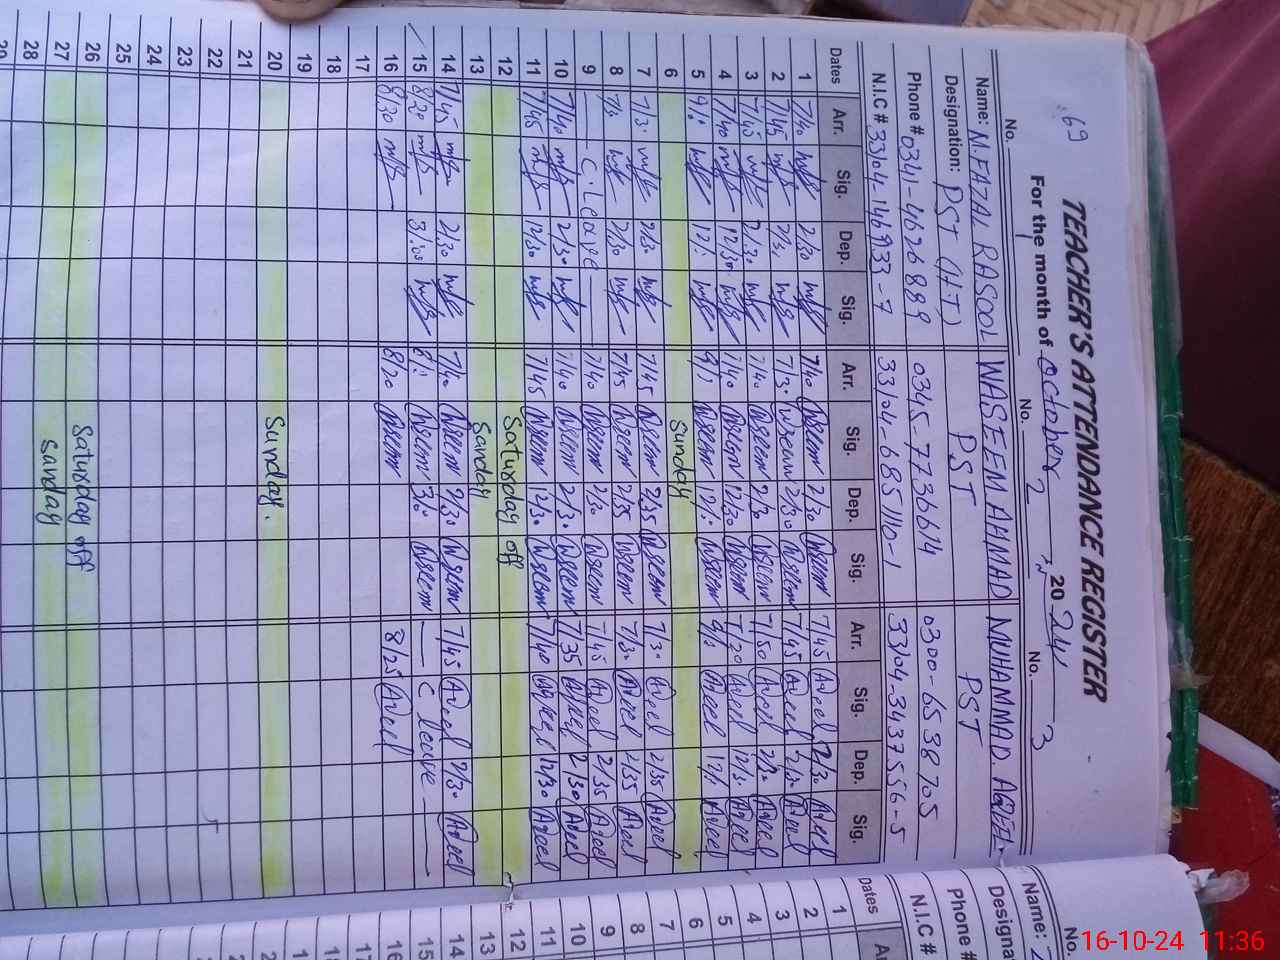 69
TEACHER'S ATTENDANCE REGISTER
For the month of October 2024
No. No. 2 No. 3
Name: M. FAZAL RASOOL WASEEM AHMAD MUHAMMAD AQEEL
Designation: PST (H.T) PST PST
Phone # 0341-4626889 0345-7736614 0300-6538705
N.I.C # 33104-146933-7 33104-6851110-1 33104-3437556-5
Dates Arr. Sig. Dep. Sig. Arr. Sig. Dep. Sig. Arr. Sig. Dep. Sig.
1 7/40 2/30 7/40 Wseem 2/30 Wseem 7/45 Aqeel 2/30 Aqeel
2 7/45 2/3. 7/3. Wseem 2/30 Wseem 7/45 Aqeel 2/30 Aqeel
3 7/45 2/30 7/40 Wseem 2/30 Wseem 7/50 Aqeel 2/30 Aqeel
4 7/40 12/30 7/40 Wseem 12/30 Wseem 7/20 Aqeel 12/30 Aqeel
5 9/. 12/. 9/. Wseem 12/. Wseem 9/. Aqeel 12/. Aqeel
6 Sunday
7 7/3. 2/30 7/45 Wseem 2/35 Wseem 7/30 Aqeel 2/35 Aqeel
8 7/4 2/30 7/45 Wseem 2/35 Wseem 7/30 Aqeel 2/35 Aqeel
9 C. Leave 7/40 Wseem 2/30 Wseem 7/45 Aqeel 2/35 Aqeel
10 7/40 2/30 7/40 Wseem 2/30 Wseem 7/35 Aqeel 2/30 Aqeel
11 7/45 12/30 7/45 Wseem 12/30 Wseem 7/40 Aqeel 12/30 Aqeel
12 Saturday off
13 Sanday
14 7/45 2/30 7/40 Wseem 2/30 Wseem 7/45 Aqeel 2/30 Aqeel
15 8:20 3/:00 8/: Wseem 3/. Wseem C leave
16 8:20 8/20 Wseem 8/25 Aqeel
17
18
19
20 Sunday.
21
22
23
24
25
26 Saturday off
27 Sanday
28
29
No.
Name:
Designa
Phone #
N.I.C #
Dates
1
2
3
4
5
6
7
8
9
10
11
12
13
14
15
16
16-10-24 11:36